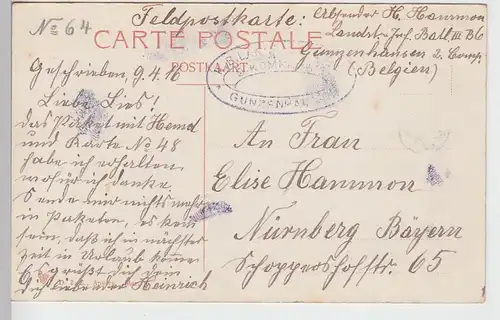 No 64
Feldpostkarte: Absender H. Hammon
CARTE POSTALE
Landst.-Inf. Batl. III B6
POSTKAART
Gunzenhausen 2. Comp.
(Belgien)
GUNZENHAUSEN
Geschrieben, 9.4.16
Liebe Lies!
Das Paket mit Hemd
und Karte No 48
habe ich erhalten
wofür ich danke.
Sende mir nichts mehr
in Paketen, es kann
sein, daß ich in nächster
Zeit in Urlaub komme
Es grüßt Dich Dein
Dich liebender Heinrich
An Frau
Elise Hammon
Nürnberg Bayern
Schoppershofstr. 65